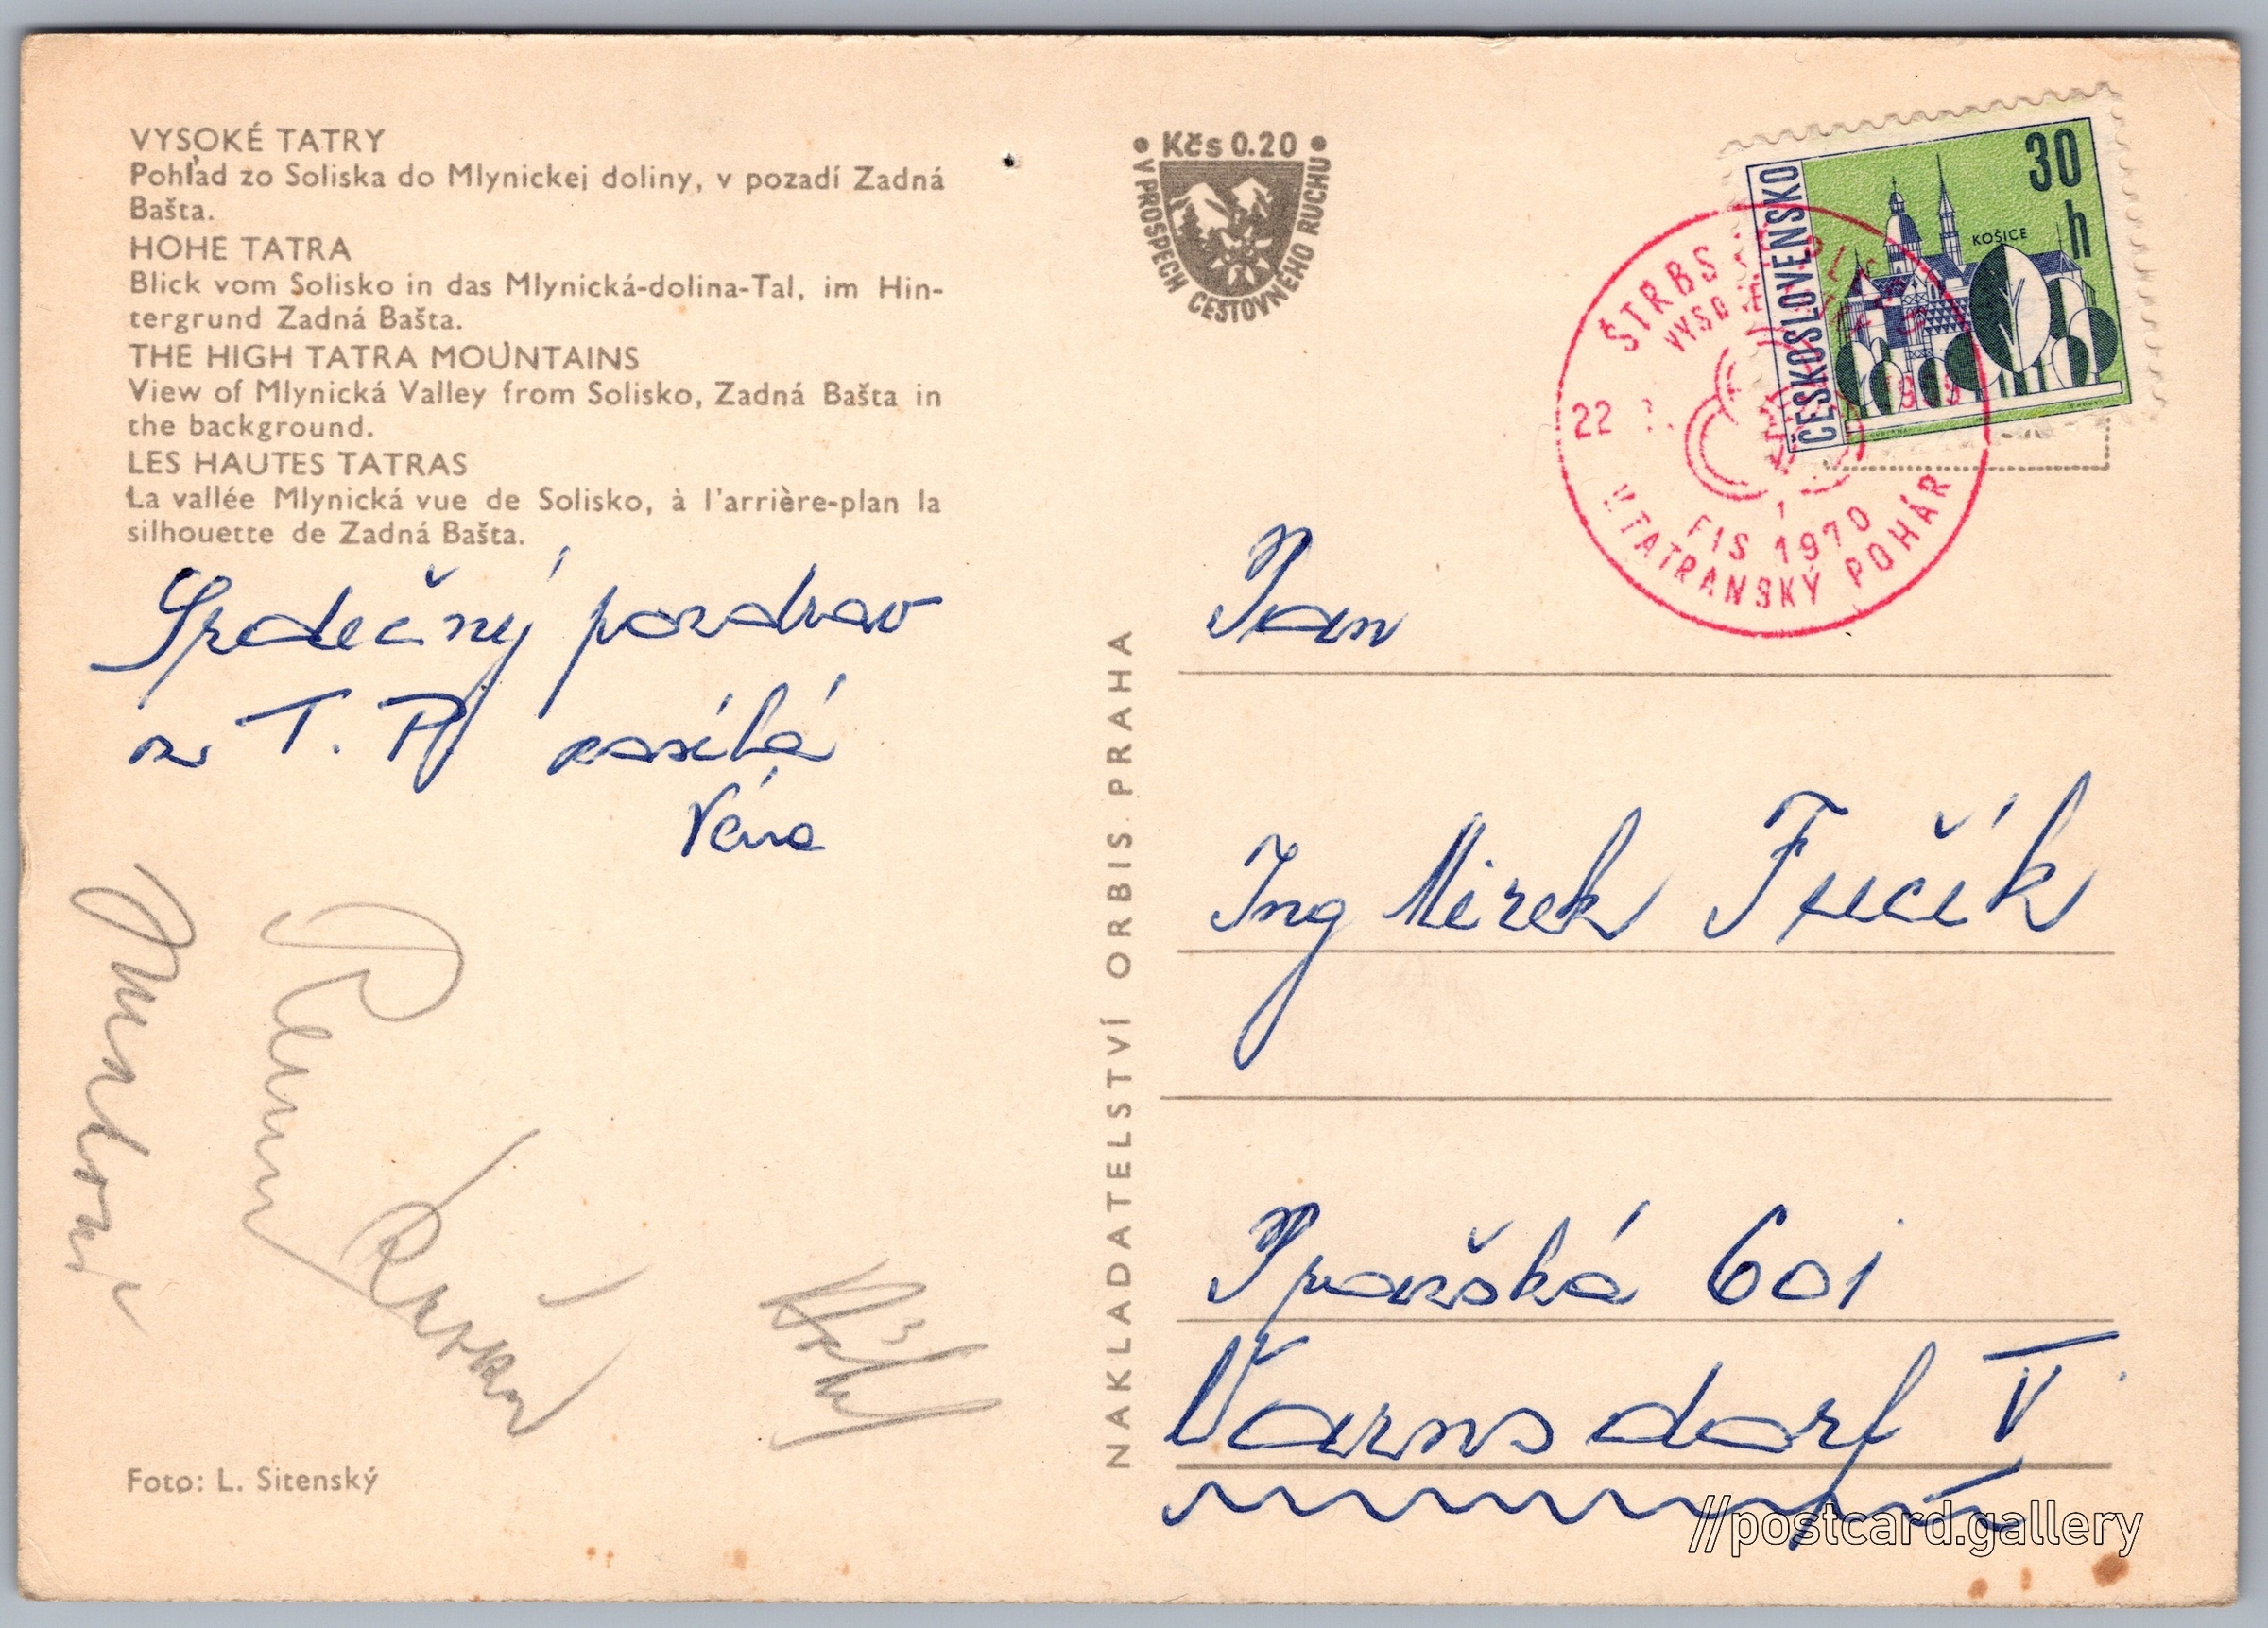 VYSOKÉ TATRY
Pohľad zo Soliska do Mlynickej doliny, v pozadí Zadná
Bašta.
HOHE TATRA
Blick vom Solisko in das Mlynická-dolina-Tal, im Hin-
tergrund Zadná Bašta.
THE HIGH TATRA MOUNTAINS
View of Mlynická Valley from Solisko, Zadná Bašta in
the background.
LES HAUTES TATRAS
La vallée Mlynická vue de Solisko, à l'arrière-plan la
silhouette de Zadná Bašta.
Srdečný pozdrav
z T. P. zasílá
Věra
Foto: L. Sitenský
NAKLADATELSTVÍ ORBIS PRAHA
Kčs 0.20
V PROSPECH CESTOVNÉHO RUCHU
ČESKOSLOVENSKO
30
h
KOŠICE
ŠTRBS
VYSOKÉ
22
1969
1
FIS 1970
V. TATRANSKÝ POHÁR
Pan
Ing Mirek Fučík
Pražská 601
Varnsdorf V
//postcard.gallery